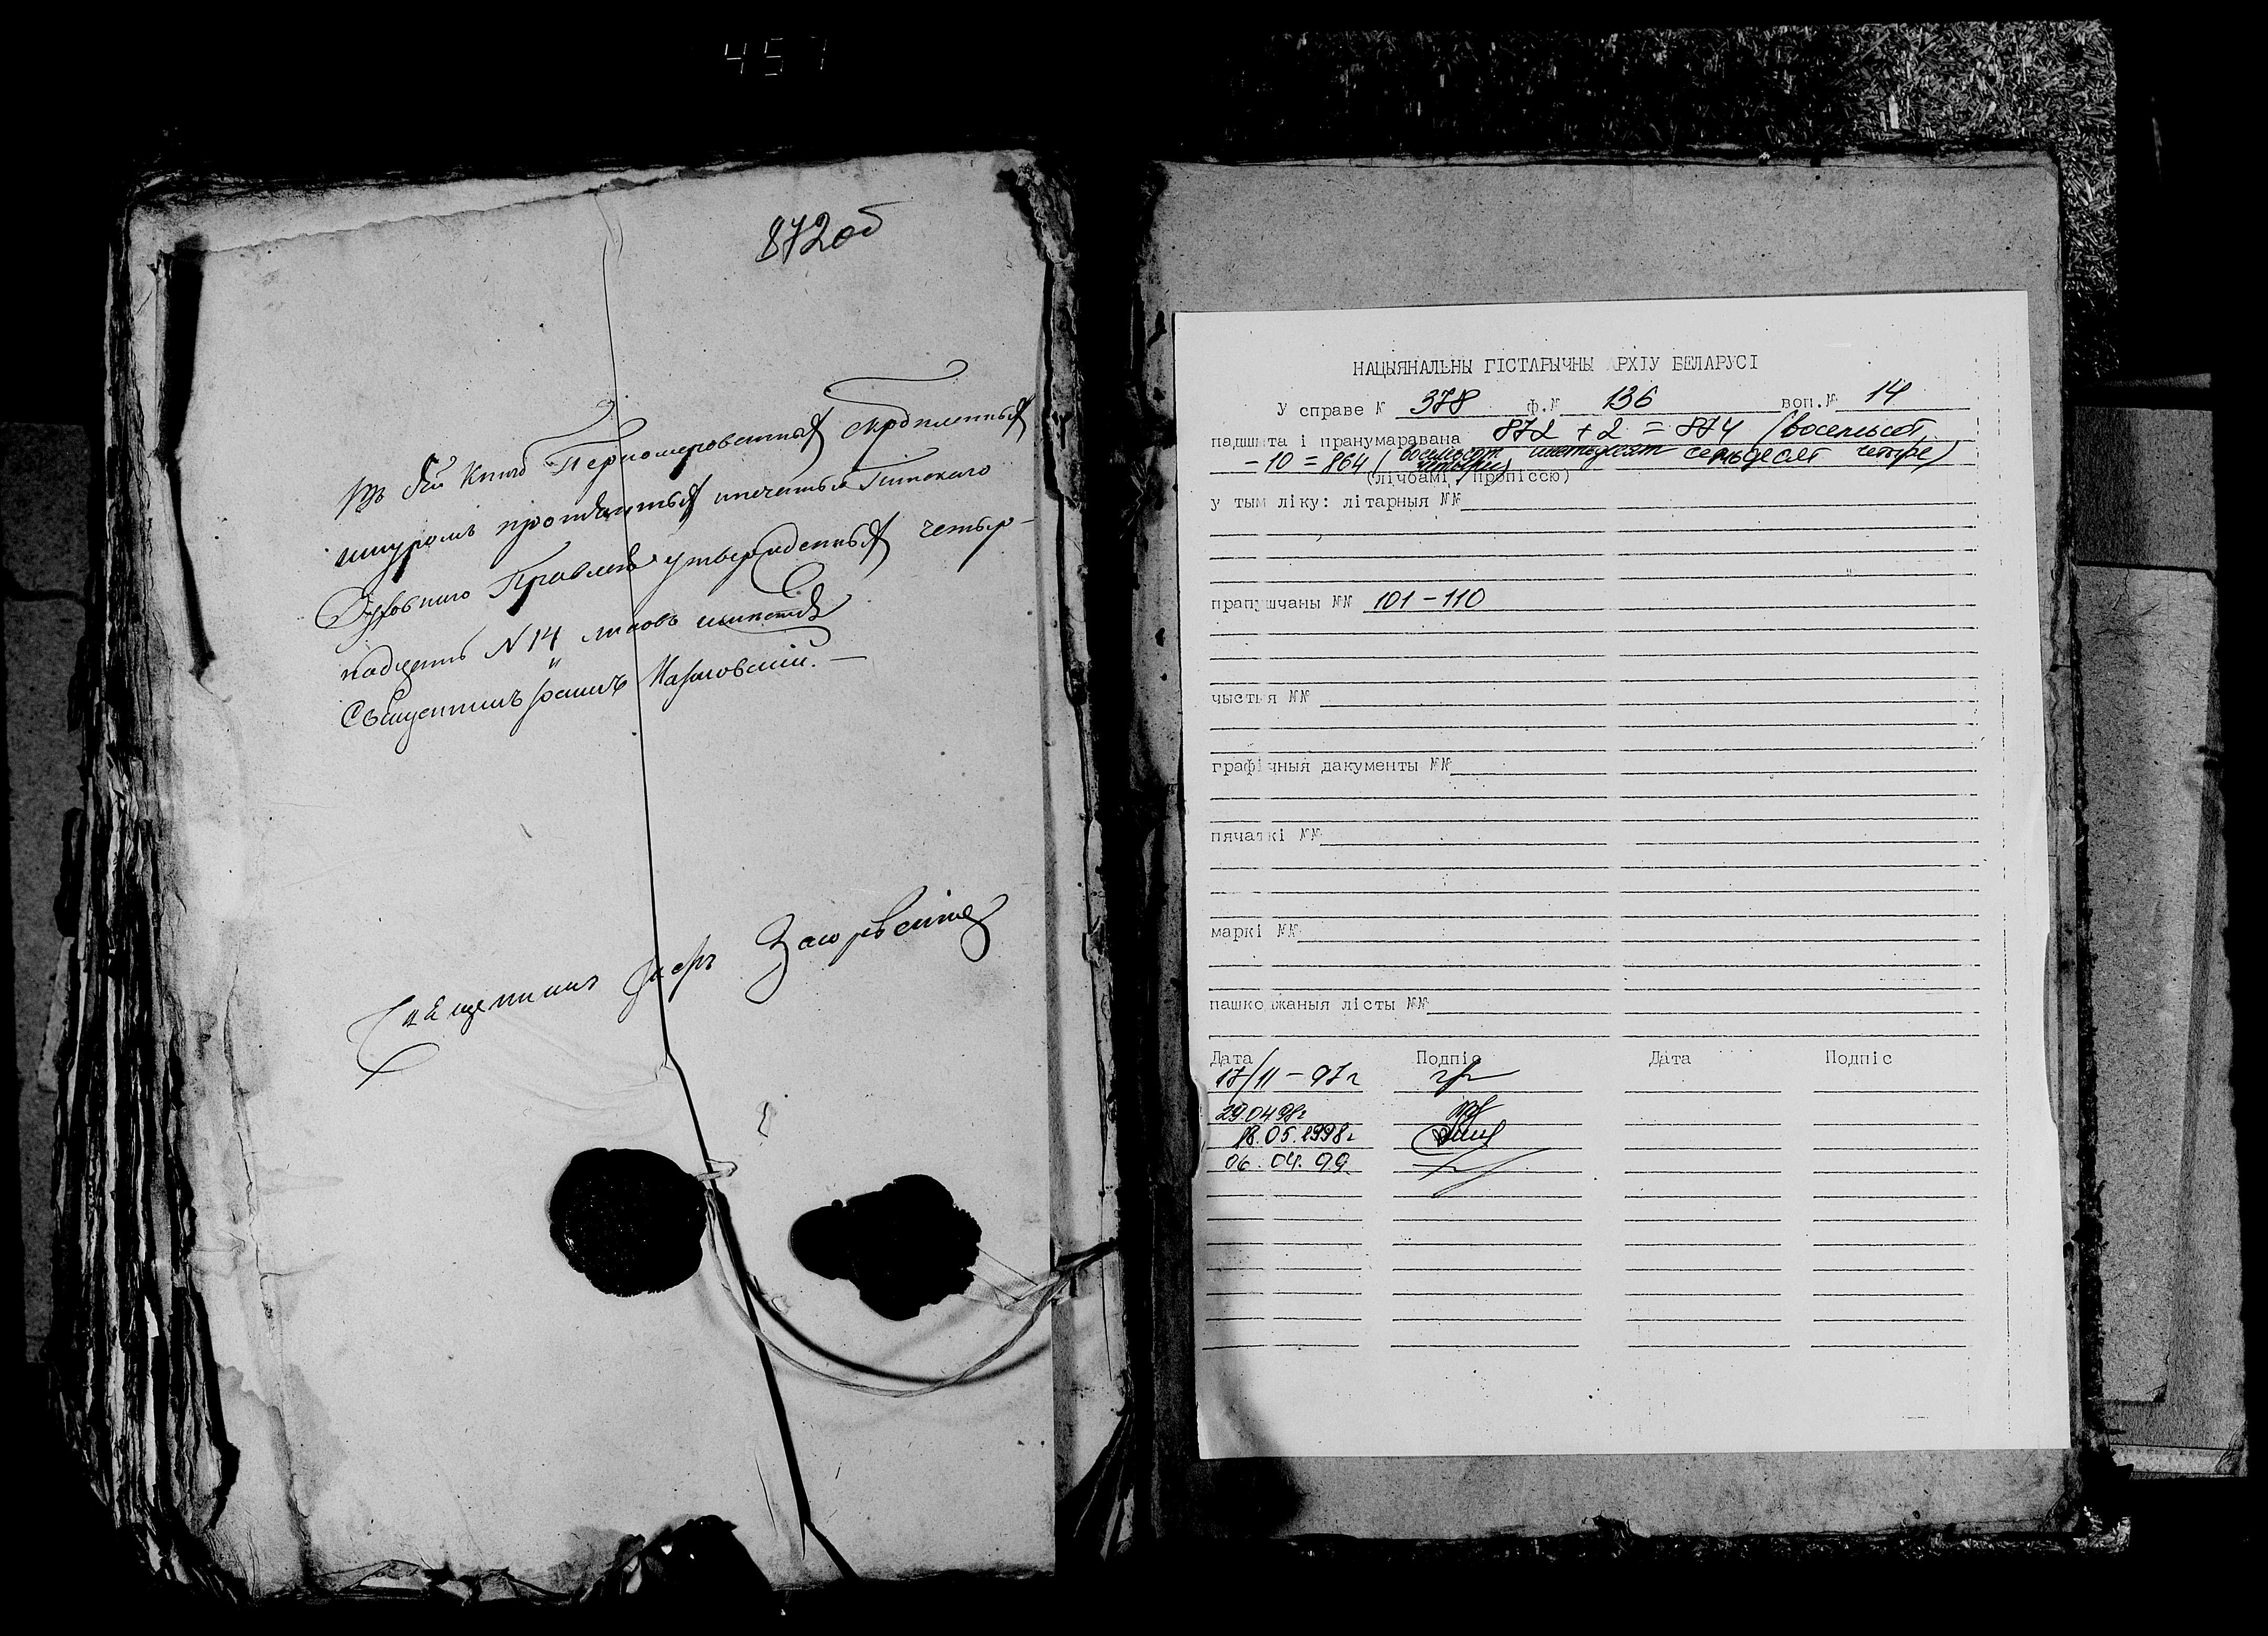 457
872об
Въ сей Книгѣ Перномерованныхъ скрѣпленныхъ
шнуромъ протянутыхъ и печатью Пинскаго
Духовнаго Правленія утвержденныхъ четыр-
надцать N 14 листовъ
Священникъ
Священникъ
НАЦЫЯНАЛЬНЫ ГІСТАРЫЧНЫ АРХІУ БЕЛАРУСІ
У справе № 378 ф.№ 136 воп.№ 14
падшыта і пранумаравана 872 + 2 = 874 (восемьсот
- 10 = 864 (восемьсот шестьдесят четыре) семьдесят четыре)
(лічбамі, пропіссю)
у тым ліку: літарныя №№
прапушчаны №№ 101-110
чыстыя №№
графічныя дакументы №№
пячаткі №№
маркі №№
пашкоджаныя лісты №№
Дата Подпіс Дата Подпіс
17/11-97г
29.04 98г
18.05.1998г
06.04.99